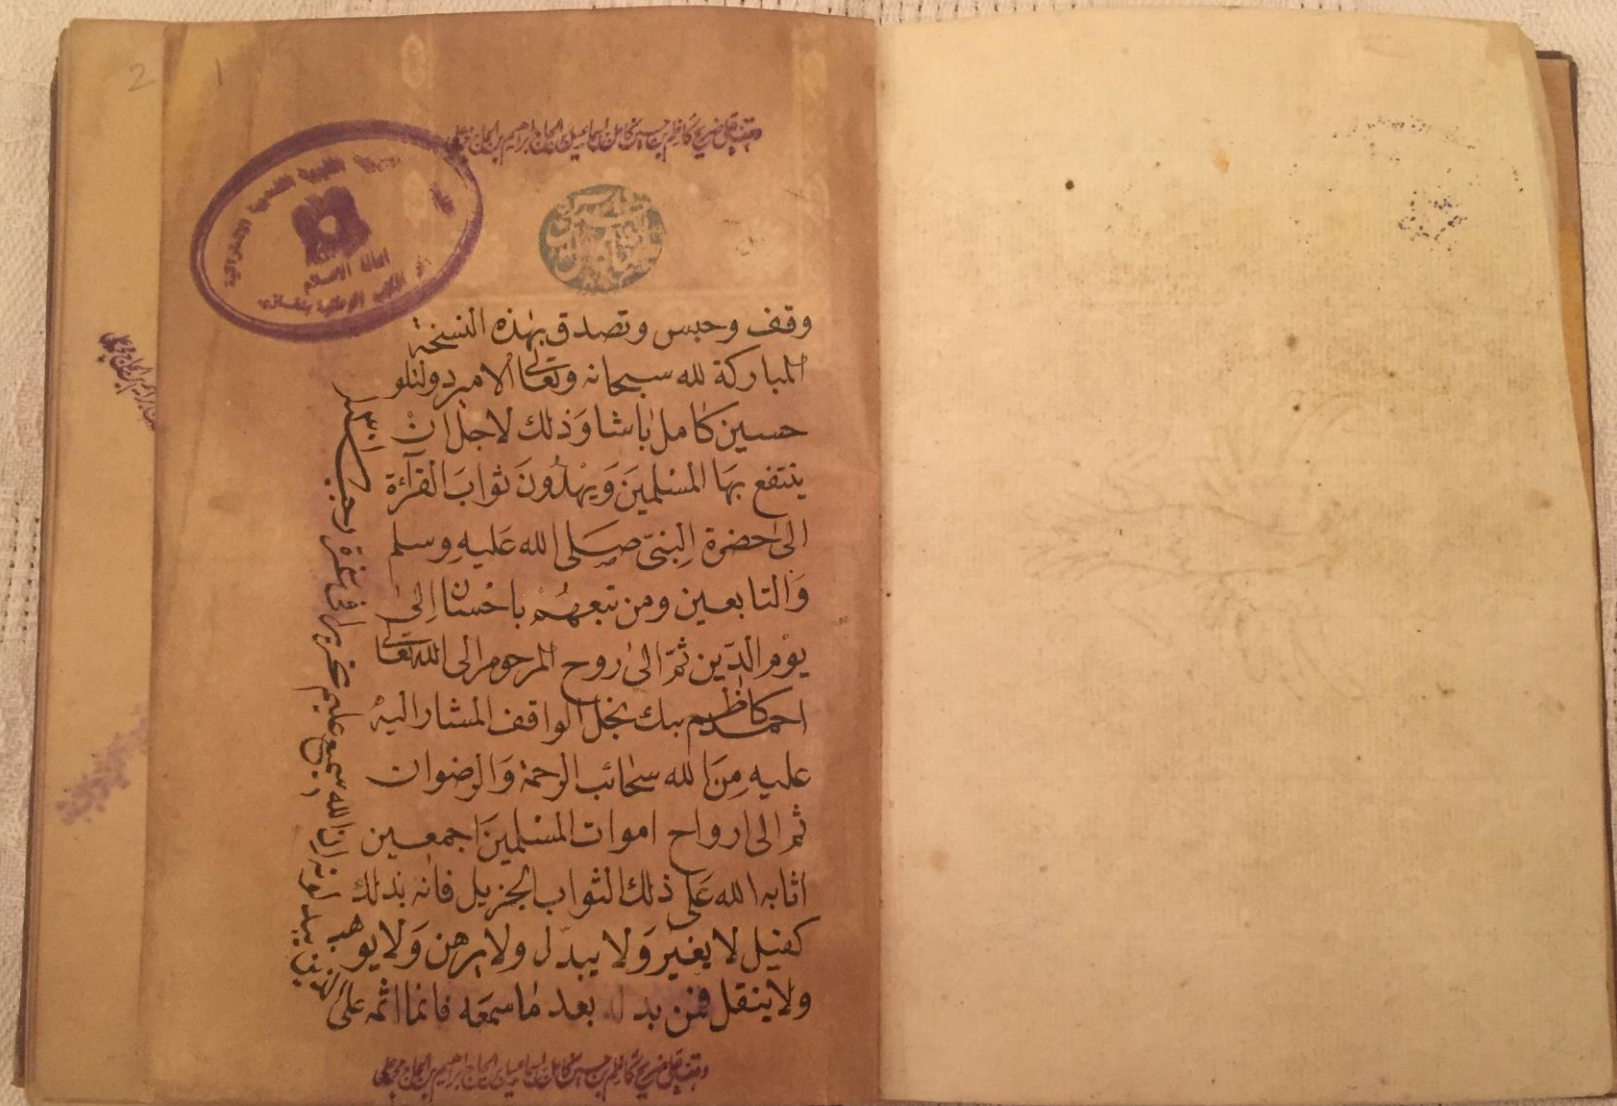 وقف على ضريح كاظم بن حسين كامل بن اسماعيل بن الحاج ابراهيم بن الحاج محمد علي
امانة الاعلام
وقف وحبس وتصدق بهٰذه النسخة
المباركة لله سبحانه وتعالى الامير دولتلو
حسين كامل باشا وَذلك لاجل انْ
ينتفع بهَا المسْلمينَ وَيهْدُونَ ثوابَ القرآءة
الىٰ حضرة النبيّ صَلى الله عَليهِ وسلم
وَالتابعين ومن تبعهُمْ باحْسان اِلىٰ
يوْم الدّين ثمّ الىٰ روح المرحوم الى الله تعَالى
احمد كاظم بيك نجل الواقف المشار اليهْ
عليهِ مِنَ الله سحَائب الرحمة وَالرضوان
ثم الى ارواح اموات المسْلمينَ اجمعين
اثابه الله عَلى ذلك الثواب الجزيل فانه بذلك
كفيل لا يغير وَلا يبدّل ولا يرهن وَلا يوهب
ولا ينقل فمن بدله بعد ما سمعَه فانما اثمه على
الذين يبدلونه ان الله سميع عليم
وقف على ضريح كاظم بن حسين كامل بن اسماعيل بن الحاج ابراهيم بن الحاج محمد علي
2
1